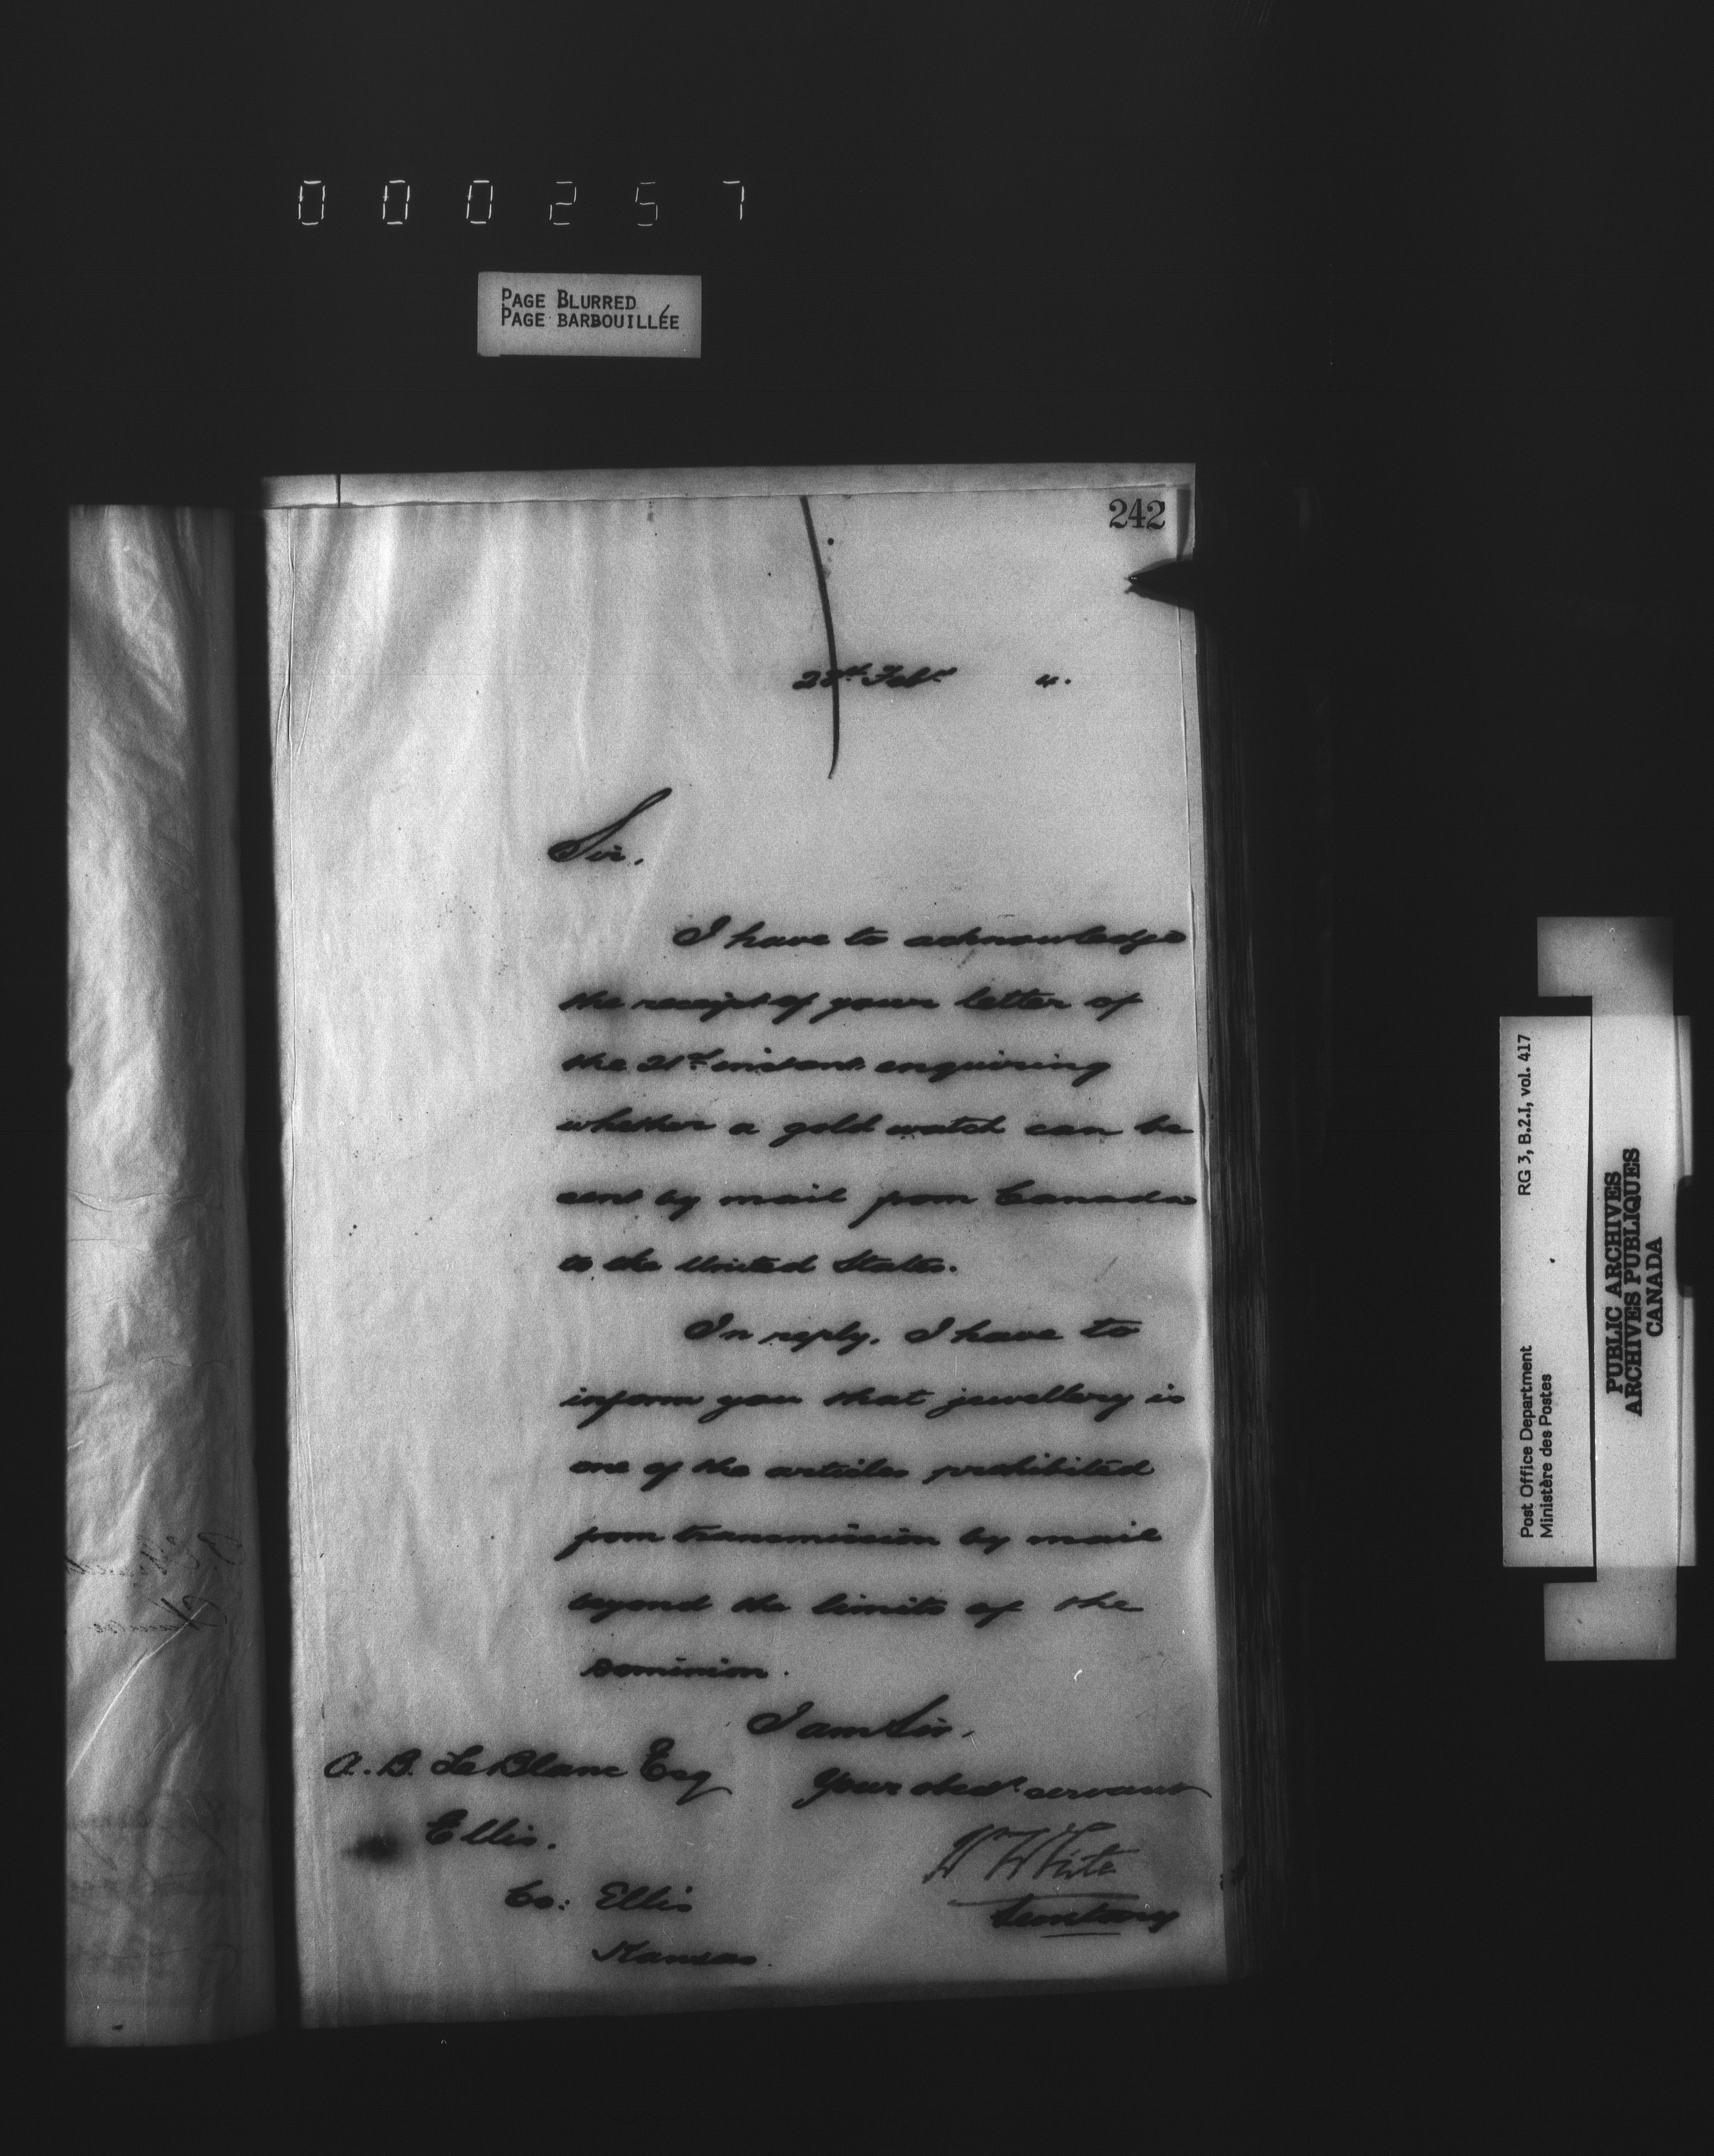 000257
PAGE BLURRED
PAGE BARBOUILLÉE
242
Feby 4.
Sir,
I have to acknowledge
the receipt of your letter of
the 21st instant enquiring
whether a gold watch can be
sent by mail from Canada
to the United States.
In reply, I have to
inform you that jewellery is
one of the articles prohibited
from transmission by mail
beyond the limits of the
Dominion.
I am Sir,
Your obedt. servant
W White
Secretary
A. B. LeBlanc Esq
Ellis.
Co: Ellis
Kansas.
Post Office Department RG 3, B.2.I, vol. 417
Ministère des Postes
PUBLIC ARCHIVES
ARCHIVES PUBLIQUES
CANADA